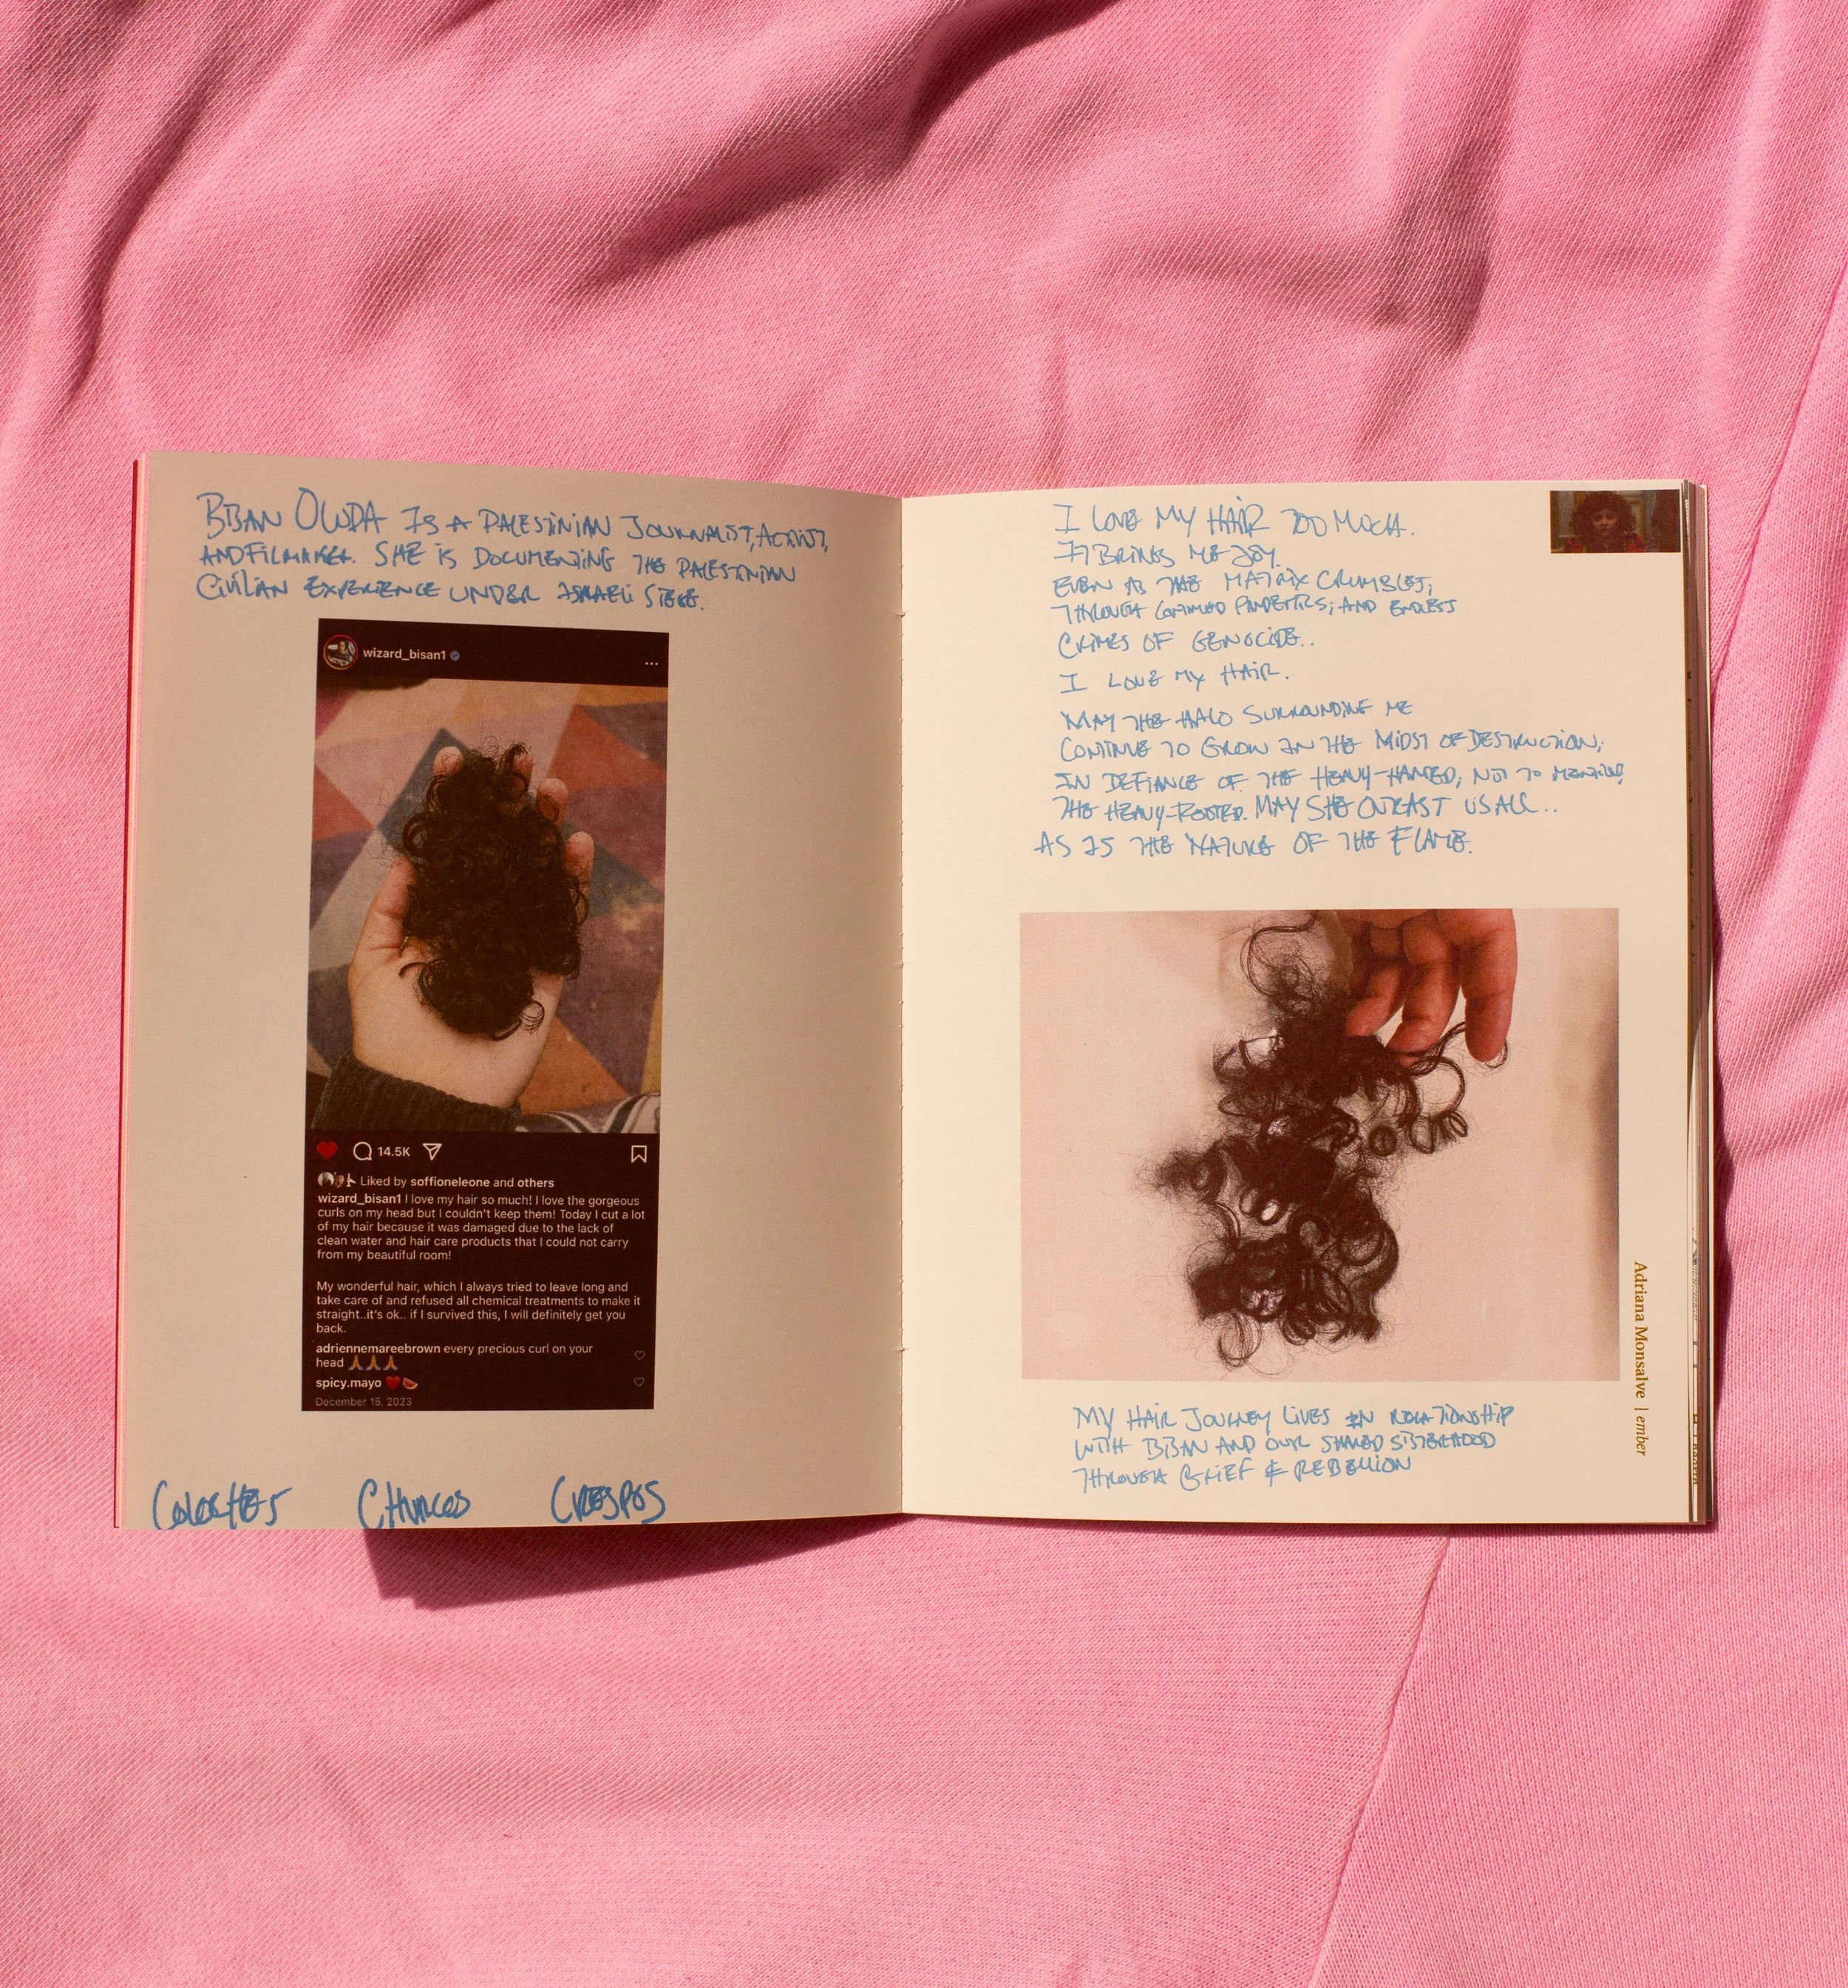 BISAN OWDA IS A PALESTINIAN JOURNALIST, ACTIVIST,
AND FILMMAKER. SHE IS DOCUMENTING THE PALESTINIAN
CIVILIAN EXPERIENCE UNDER ISRAELI SIEGE.
wizard_bisan1
14.5K
Liked by soffioneleone and others
wizard_bisan1 I love my hair so much! I love the gorgeous
curls on my head but I couldn't keep them! Today I cut a lot
of my hair because it was damaged due to the lack of
clean water and hair care products that I could not carry
from my beautiful room!
My wonderful hair, which I always tried to leave long and
take care of and refused all chemical treatments to make it
straight..it's ok.. if I survived this, I will definitely get you
back.
adriennemareebrown every precious curl on your
head 🙏🙏🙏
spicy.mayo ❤️🍉
December 15, 2023
COLOCHES CHURCOS CRESPOS
I LOVE MY HAIR TOO MUCH.
IT BRINGS ME JOY.
EVEN AS THE MATRIX CRUMBLES;
THROUGH CONTINUED PANDEMICS; AND ENDLESS
CRIMES OF GENOCIDE..
I LOVE MY HAIR.
MAY THE HALO SURROUNDING ME
CONTINUE TO GROW IN THE MIDST OF DESTRUCTION;
IN DEFIANCE OF THE HEAVY-HANDED, NOT TO MENTION,
THE HEAVY-ROOTED. MAY SHE OUTLAST US ALL..
AS IS THE NATURE OF THE FLAME.
MY HAIR JOURNEY LIVES IN RELATIONSHIP
WITH BISAN AND OUR SHARED SISTERHOOD
THROUGH GRIEF & REBELLION
Adriana Monsalve | ember